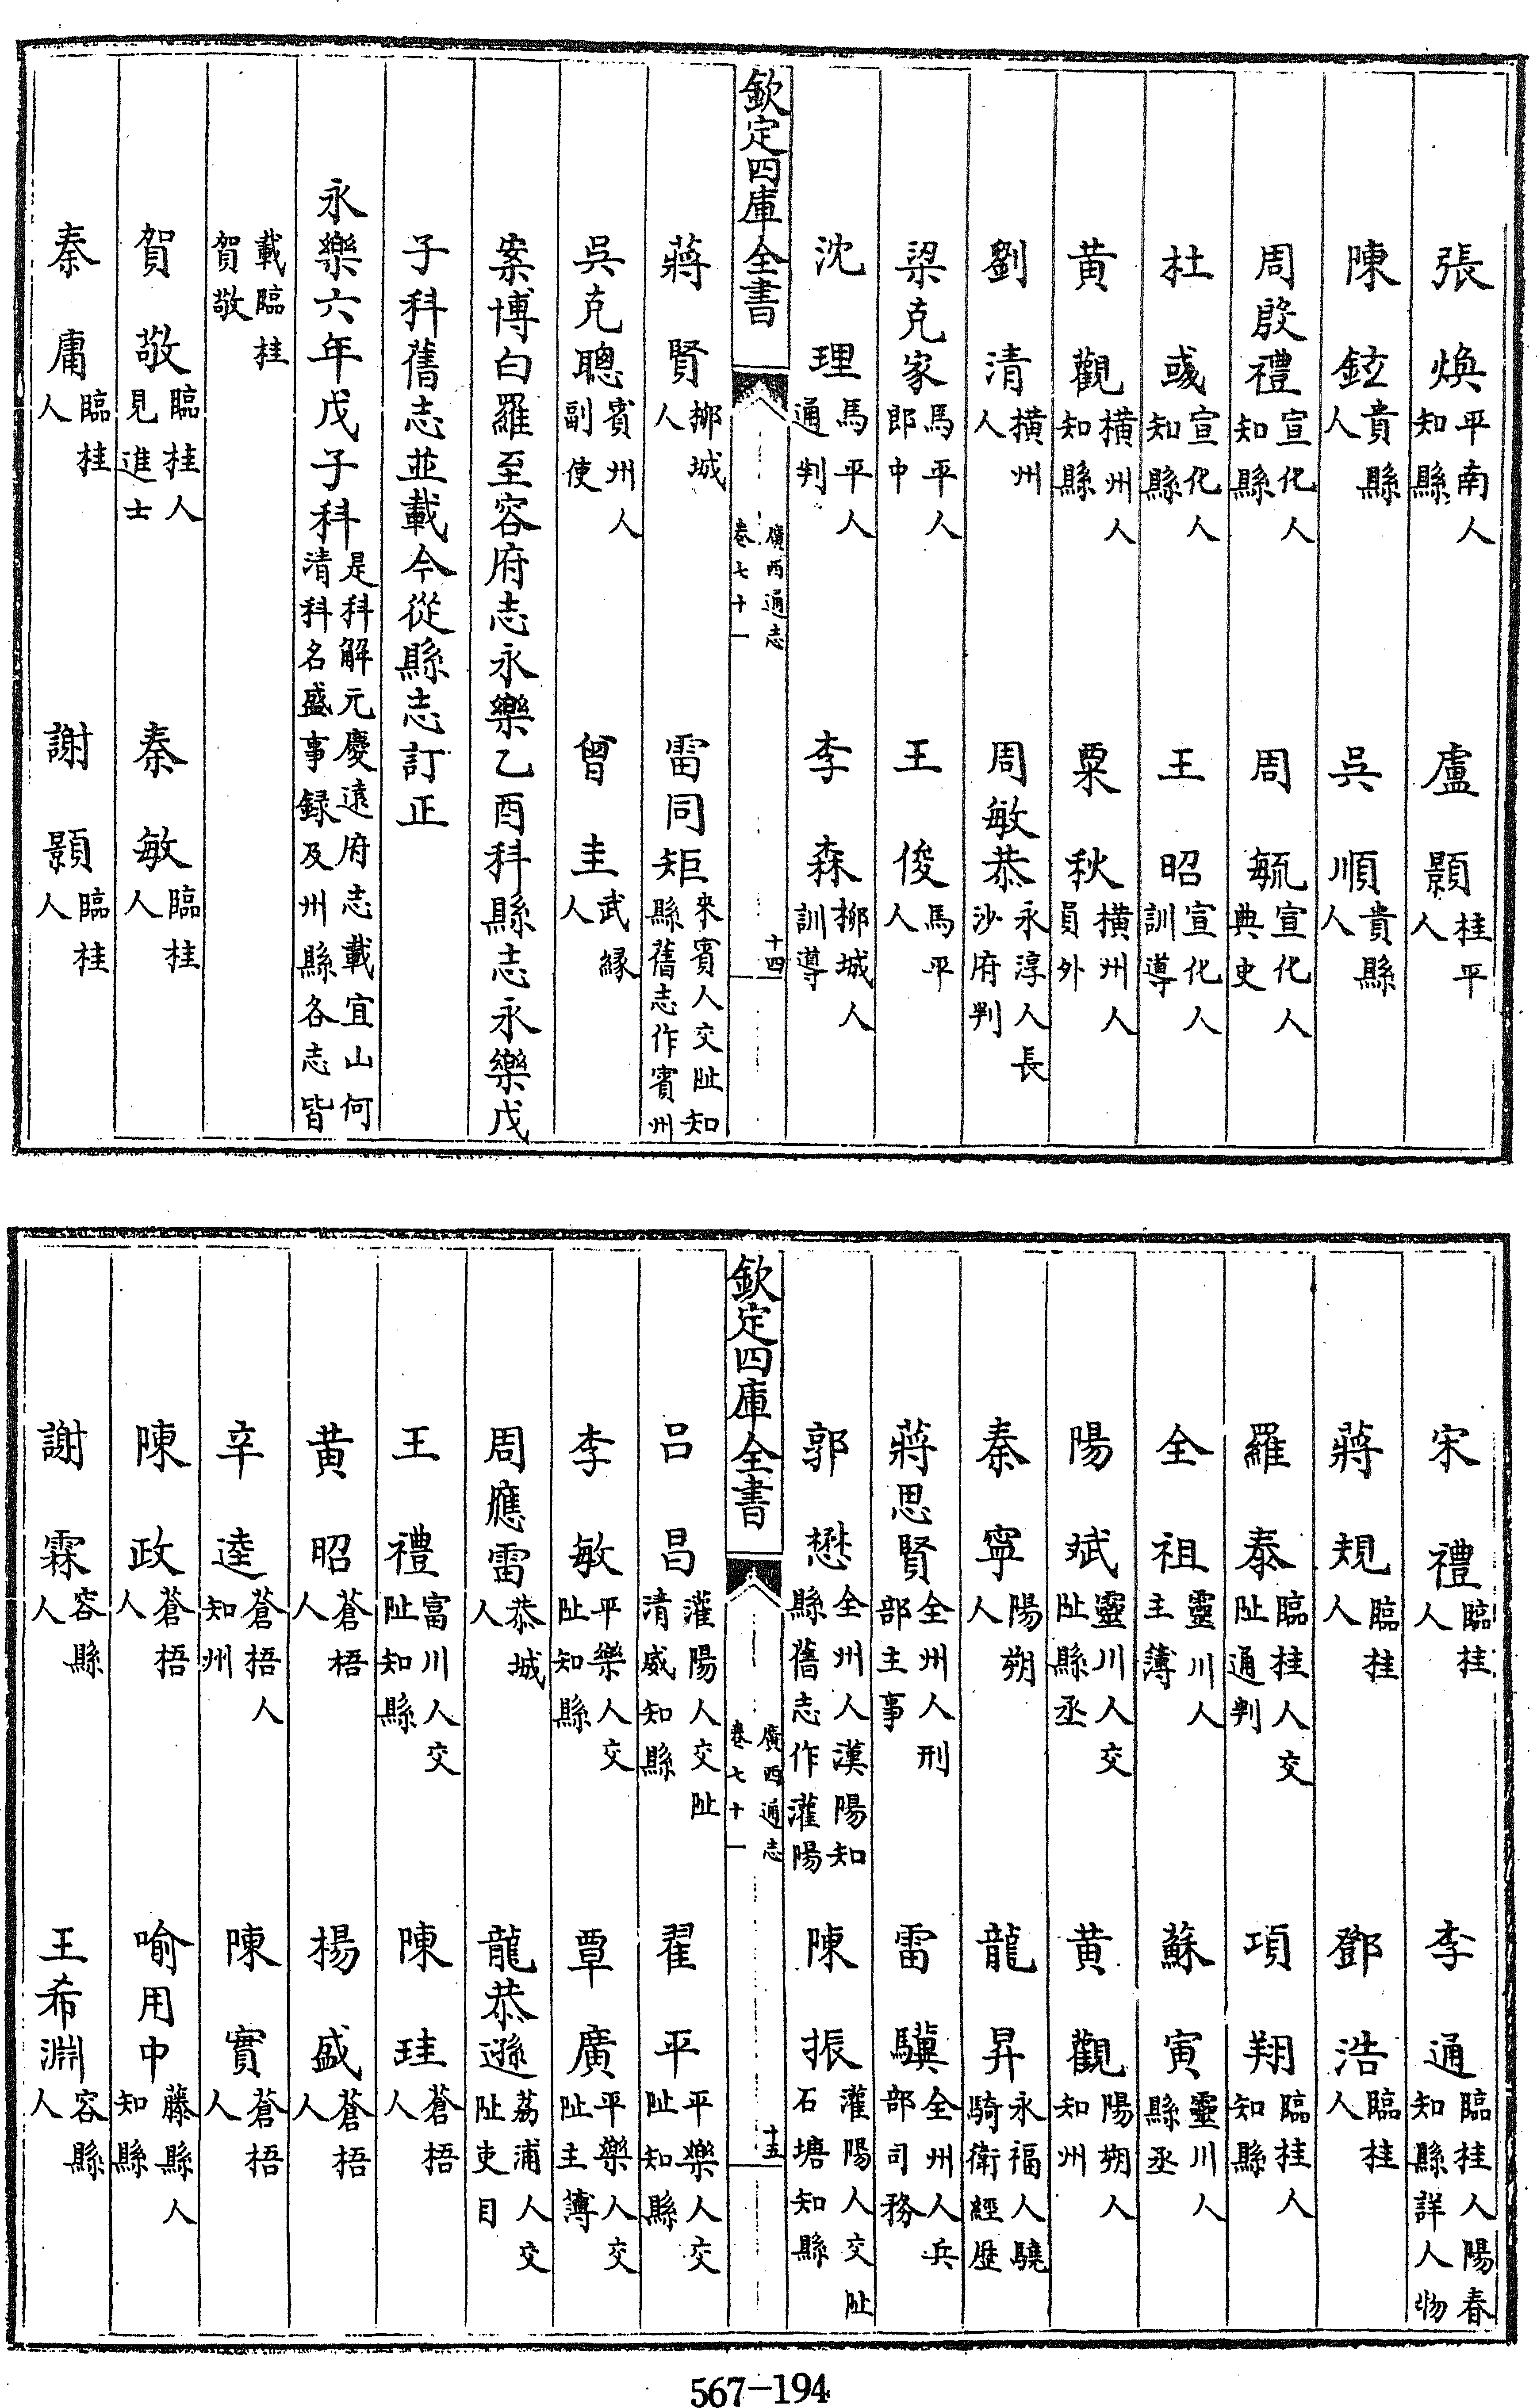 張煥平南人知縣　盧顥桂平人
陳鉉貴縣人　吳順貴縣人
周啟禮宣化人知縣　周毓宣化人典史
杜彧宣化人知縣　王昭宣化人訓導
黄觀橫州人知縣　粟秋橫州人員外
劉清橫州人　周敏恭永淳人長沙府判
梁克家馬平人郎中　王俊馬平人
沈理馬平人通判　李森栁城人訓導
欽定四庫全書　廣西通志卷七十一　十四
蔣賢栁城人　雷同矩來賓人交阯知縣舊志作賓州
吳克聰賓州人副使　曾圭武緣人
案博白羅至容府志永樂乙酉科縣志永樂戊
子科舊志並載今從縣志訂正
永樂六年戊子科是科解元慶遠府志載宜山何清科名盛事録及州縣各志皆
載臨桂賀敬
賀敬臨桂人見進士　秦敏臨桂人
秦庸臨桂人　謝顥臨桂人
宋禮臨桂人　李通臨桂人陽春知縣詳人物
蔣規臨桂人　鄧浩臨桂人
羅泰臨桂人交阯通判　項翔臨桂人知縣
全祖靈川人主簿　蘇寅靈川人縣丞
陽斌靈川人交阯縣丞　黄觀陽朔人知州
秦寧陽朔人　龍昇永福人驍騎衛經歴
蔣思賢全州人刑部主事　雷驥全州人兵部司務
郭懋全州人漢陽知縣舊志作灌陽　陳振灌陽人交阯石塘知縣
欽定四庫全書　廣西通志卷七十一　十五
吕昌灌陽人交阯清威知縣　翟平平樂人交阯知縣
李敏平樂人交阯知縣　覃廣平樂人交阯主簿
周應雷恭城人　龍恭遜荔浦人交阯吏目
王禮富川人交阯知縣　陳珪蒼梧人
黄昭蒼梧人　楊盛蒼梧人
辛逵蒼梧人知州　陳實蒼梧人
陳政蒼梧人　喻用中藤縣人知縣
謝霖容縣人　王希淵容縣人
567-194